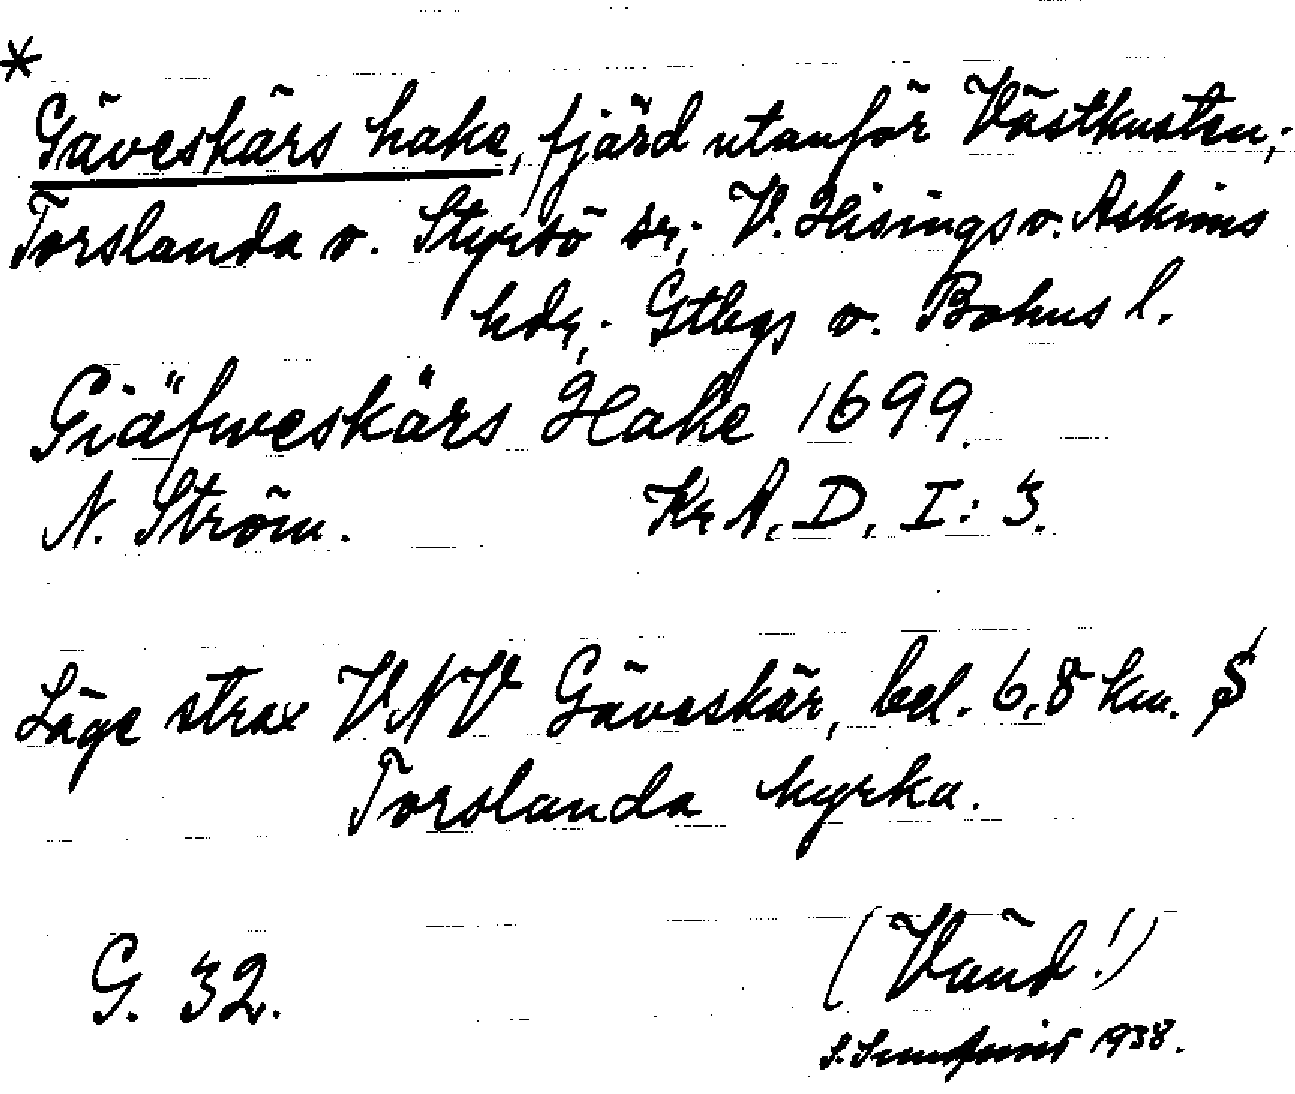 *
Gäveskärs hake, fjärd utanför Västkusten;
Torslanda o. Styrsö sr; V. Hisings o. Askims
hdr; Gtbgs o. Bohus l.
Giäfweskärs Hake 1699.
N. Ström. KrA. D. I: 3.
Läge strax VNV Gäveskär, bel. 6,8 km. S
Torslanda kyrka.
G. 32. (Vänd!)
1938.